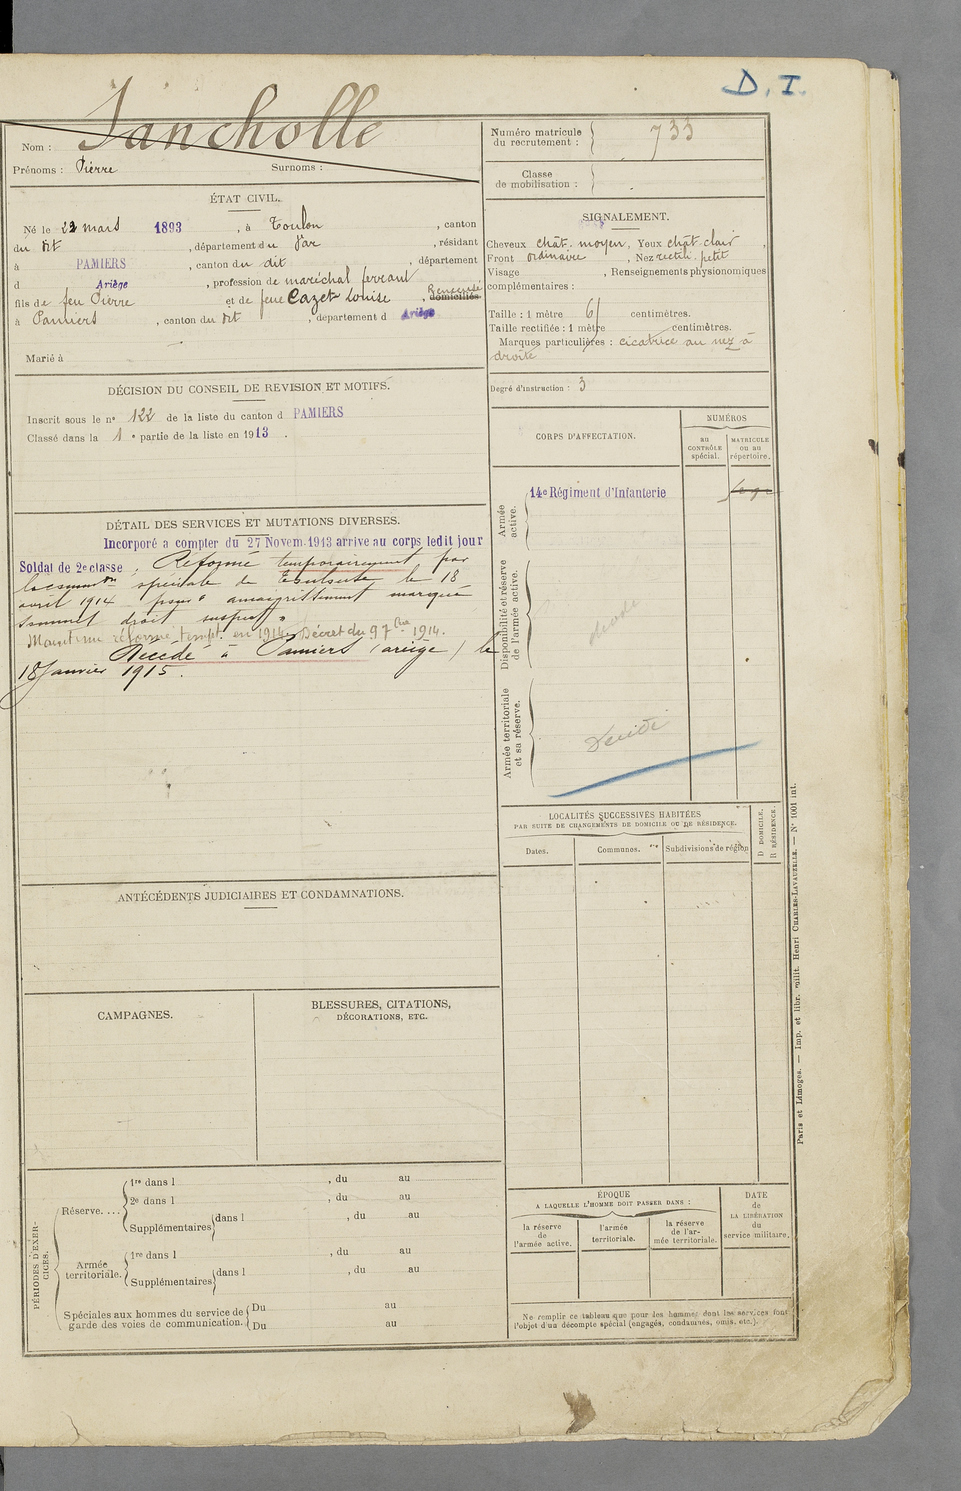 D. I.
Nom : Sancholle
Prénoms : Pierre Surnoms :
Numéro matricule du recrutement : 733
Classe de mobilisation :
ÉTAT CIVIL.
Né le 22 mars 1893, à Toulon, canton
du dit, département du Var, résidant
à PAMIERS, canton du dit, département
d Ariège, profession de maréchal ferrant
fils de feu Pierre et de feue Cazet Louise, domiciliés
à Pamiers, canton du dit, département d Ariège
Marié à
SIGNALEMENT.
Cheveux chât. moyen, Yeux chât. clair,
Front ordinaire, Nez rectil. petit
Visage , Renseignements physionomiques
complémentaires :
Taille : 1 mètre 61 centimètres.
Taille rectifiée : 1 mètre centimètres.
Marques particulières : cicatrice au nez à
droite
Degré d'instruction : 3
DÉCISION DU CONSEIL DE REVISION ET MOTIFS.
Inscrit sous le n° 122 de la liste du canton d PAMIERS
Classé dans la 1e partie de la liste en 1913.
CORPS D'AFFECTATION.
NUMÉROS
au CONTRÔLE spécial.
MATRICULE ou au répertoire.
Armée active.
14e Régiment d'Infanterie
Disponibilité et réserve de l'armée active.
décédé
Armée territoriale et sa réserve.
Décédé
DÉTAIL DES SERVICES ET MUTATIONS DIVERSES.
Incorporé a compter du 27 Novem. 1913 arrive au corps ledit jour
Soldat de 2e classe, Réformé temporairement par
la comm.on spéciale de Toulouse le 18
avril 1914 pour "amaigrissement marqué
sommet droit suspect"
Maintenu réformé tempt. en 1914. Décret du 9 7bre 1914.
Décédé à Pamiers (ariège) le
18 Janvier 1915.
LOCALITÉS SUCCESSIVES HABITÉES
PAR SUITE DE CHANGEMENTS DE DOMICILE OU DE RÉSIDENCE.
Dates. Communes. Subdivisions de région
D DOMICILE.
R RÉSIDENCE.
ANTÉCÉDENTS JUDICIAIRES ET CONDAMNATIONS.
CAMPAGNES.
BLESSURES, CITATIONS,
DÉCORATIONS, ETC.
PÉRIODES D'EXERCICES.
Réserve....
1re dans l , du au
2e dans l , du au
Supplémentaires dans l , du au
Armée territoriale.
1re dans l , du au
Supplémentaires dans l , du au
Spéciales aux hommes du service de garde des voies de communication.
Du au
Du au
ÉPOQUE
A LAQUELLE L'HOMME DOIT PASSER DANS :
la réserve de l'armée active.
l'armée territoriale.
la réserve de l'armée territoriale.
DATE de LA LIBÉRATION du service militaire.
Ne remplir ce tableau que pour les hommes dont les services font
l'objet d'un décompte spécial (engagés, condamnés, omis, etc.).
Paris et Limoges. — Imp. et libr. milit. Henri CHARLES-LAVAUZELLE. — N° 1001 int.